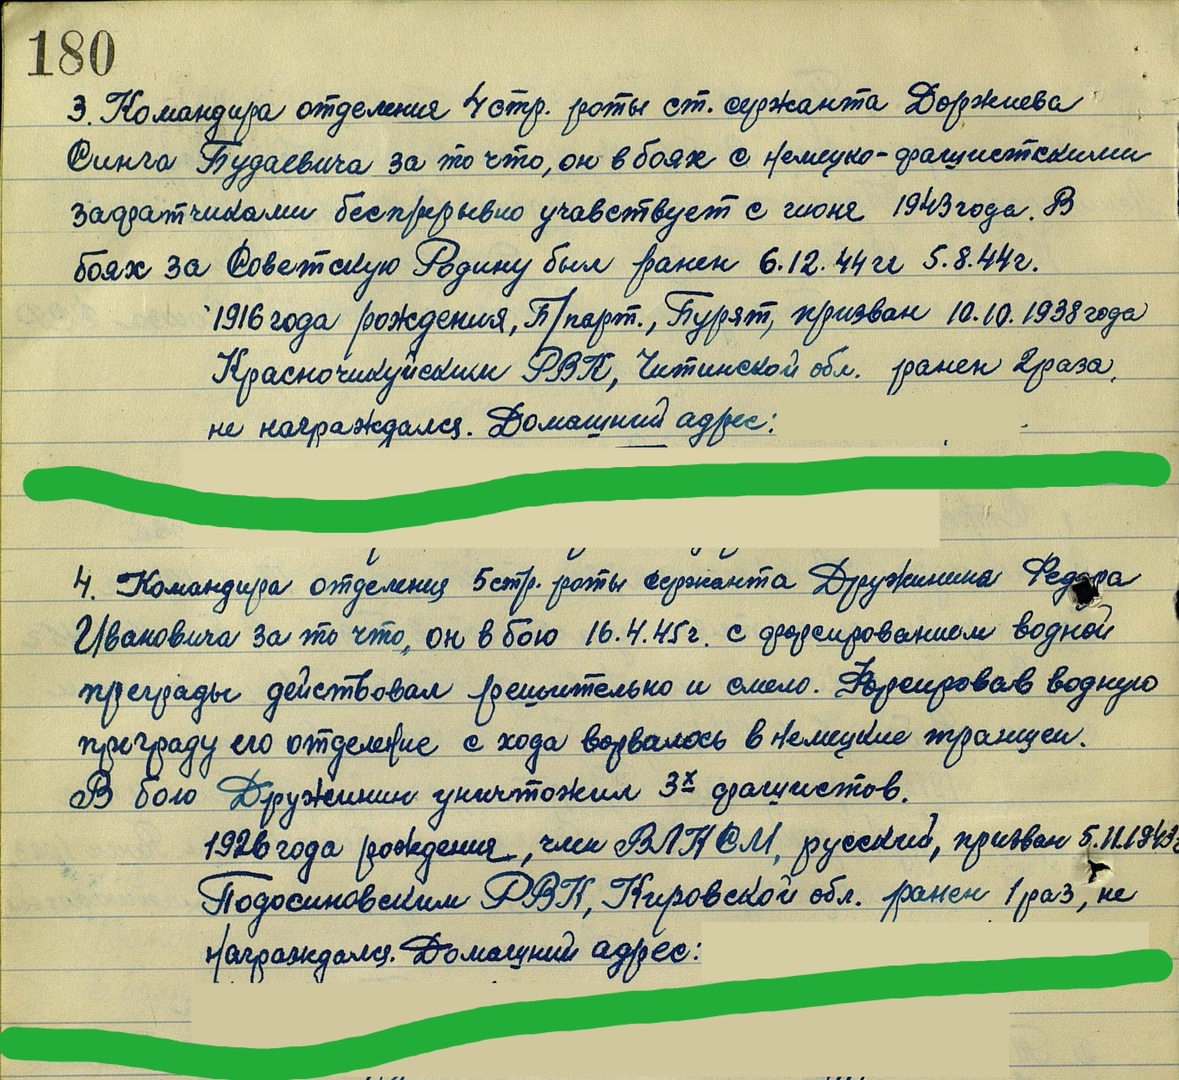 180
3. Командира отделения 4 стр. роты ст. сержанта Доржиева
Синга Будаевича за то что, он в боях с немецко-фашистскими
захватчиками беспрерывно учавствует с июне 1943 года. В
боях за Советскую Родину был ранен 6.12.44 и 5.8.44г.
1916 года рождения, Б/парт., Бурят, призван 10.10.1938 года
Красночикуйским РВК, Читинской обл. ранен 2 раза,
не награждался. Домашний адрес:
4. Командира отделения 5 стр. роты сержанта Дружинина Федора
Ивановича за то что, он в бою 16.4.45г. с форсированием водной
преграды действовал решительно и смело. Форсировав водную
преграду его отделение с хода ворвалось в немецкие траншеи.
В бою Дружинин уничтожил 3х фашистов.
1926 года рождения, член ВЛКСМ, русский, призван 5.11.1943г
Подосиновским РВК, Кировской обл. ранен 1 раз, не
награждался. Домашний адрес: